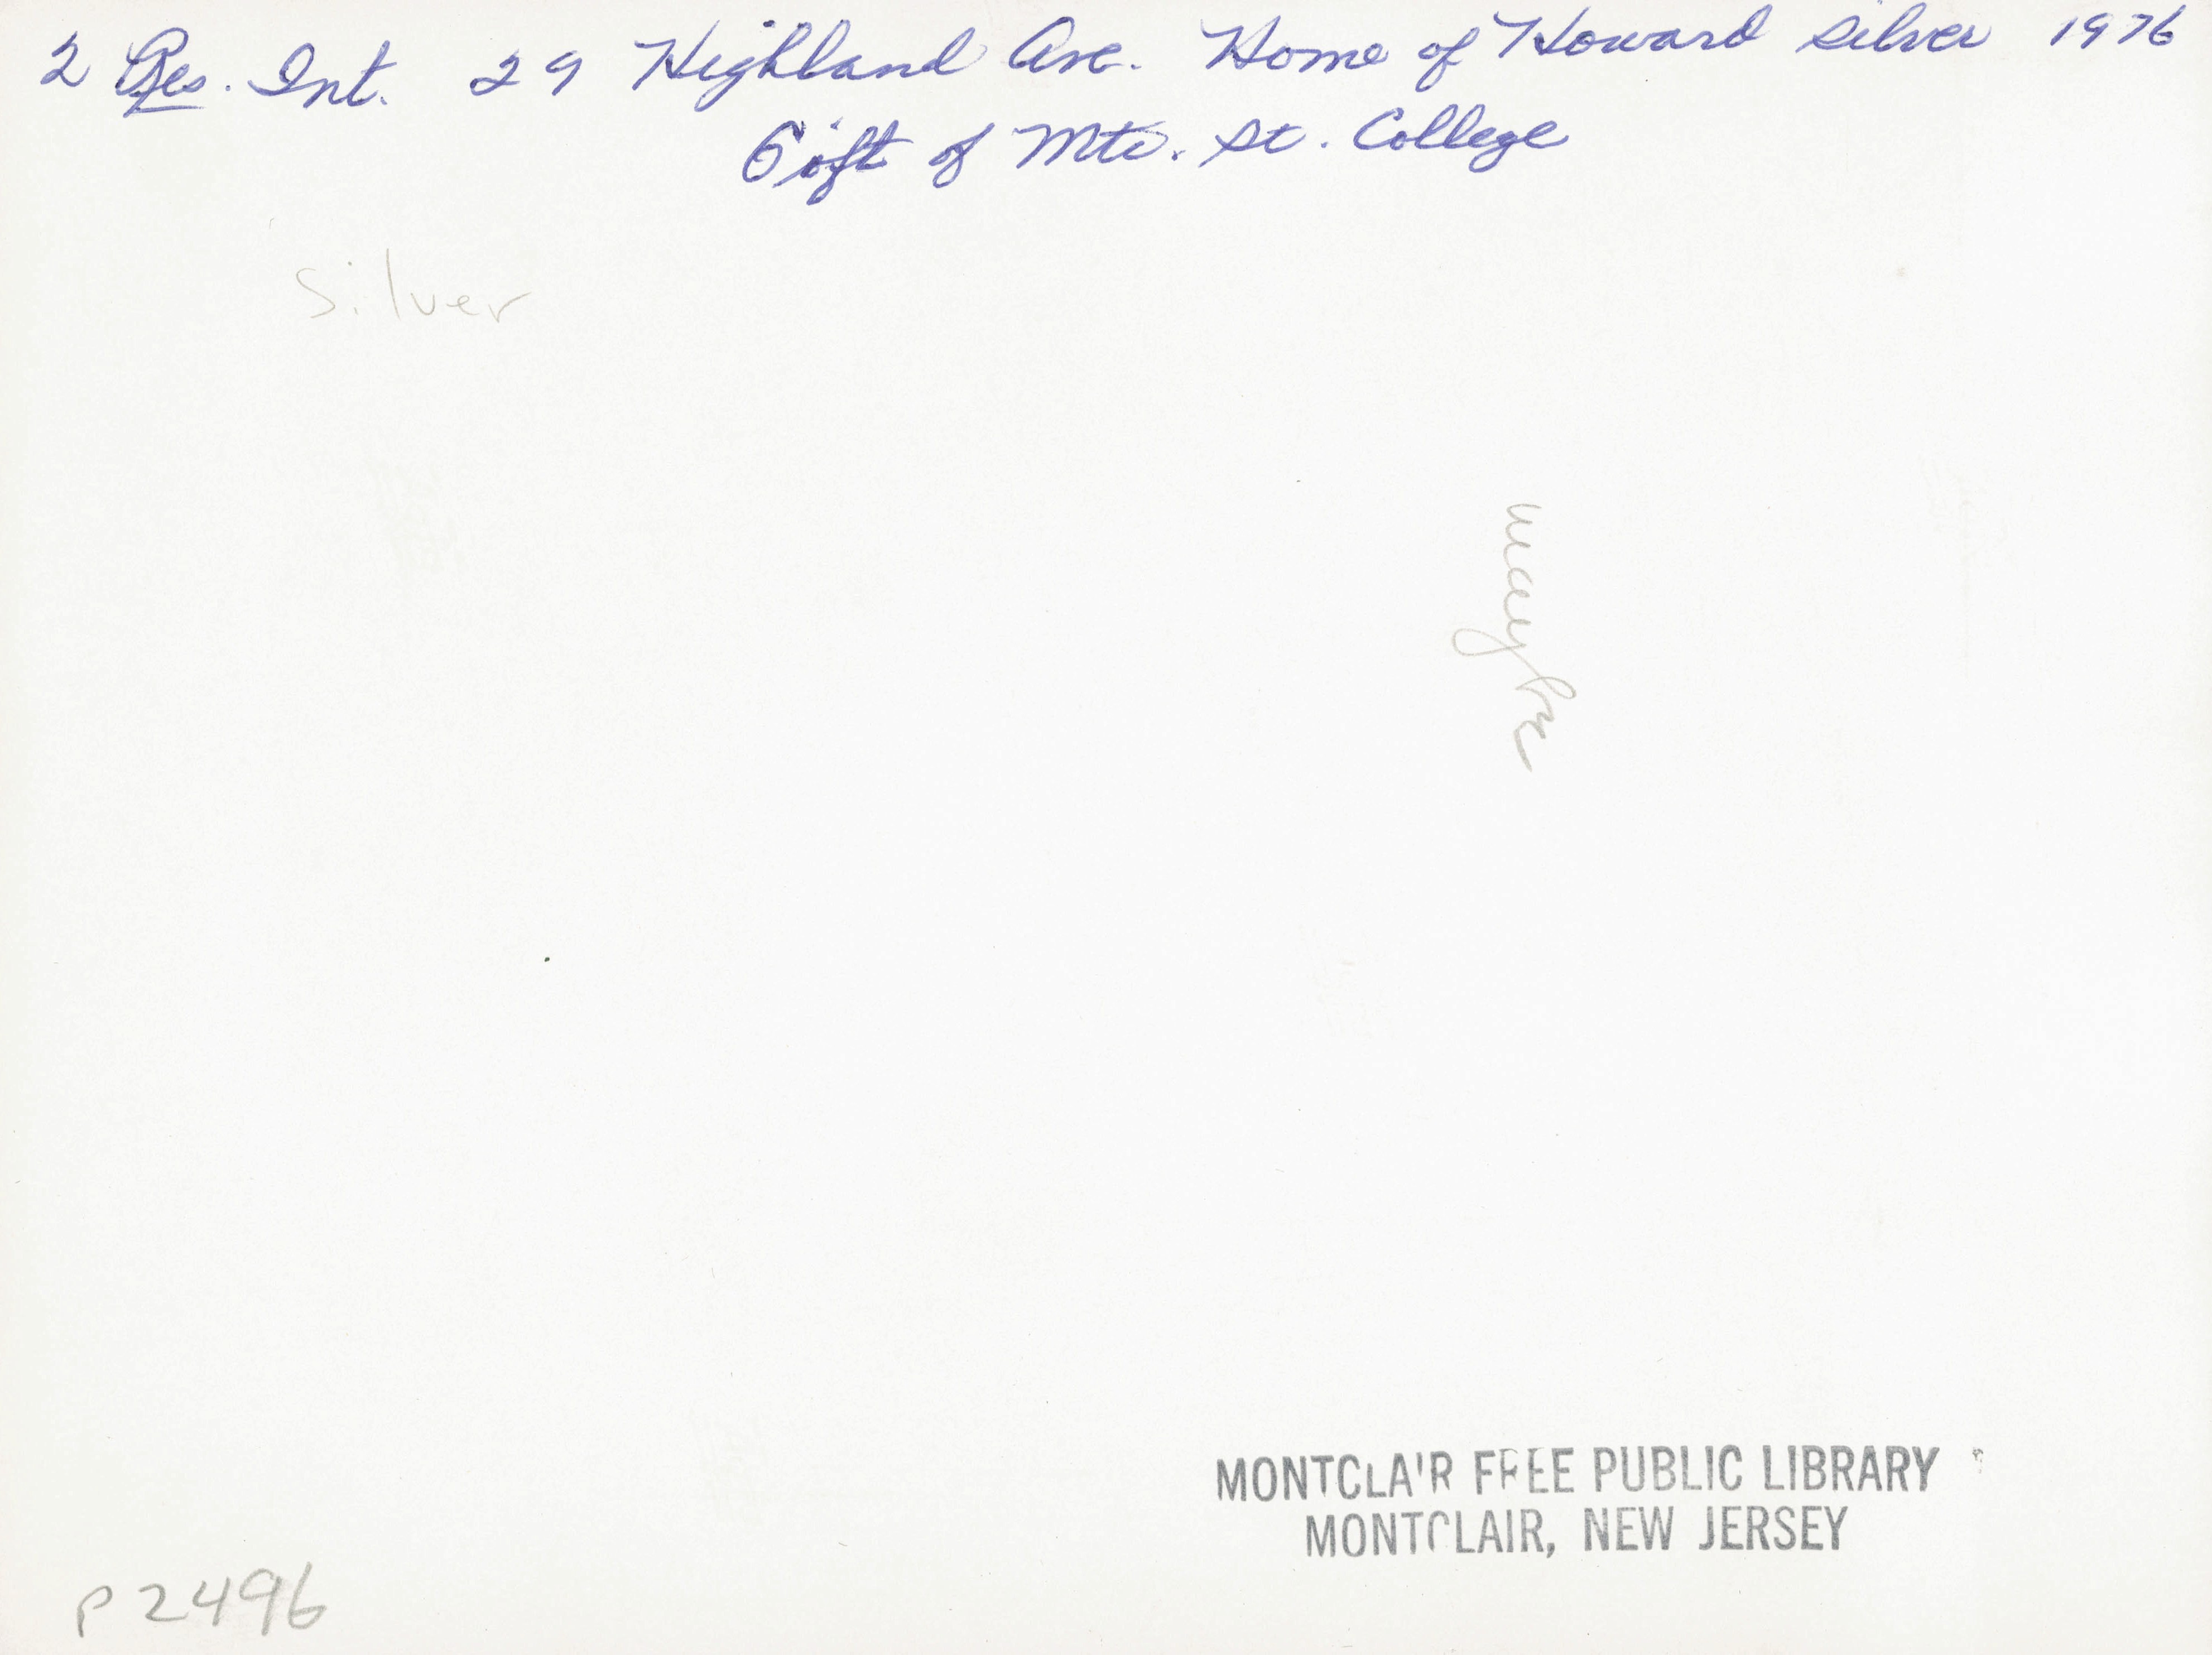 2 Res. Int. 29 Highland Ave. Home of Howard Silver 1976
Gift of Mtc. St. College
Silver
MONTCLAIR FREE PUBLIC LIBRARY
MONTCLAIR, NEW JERSEY
P2496